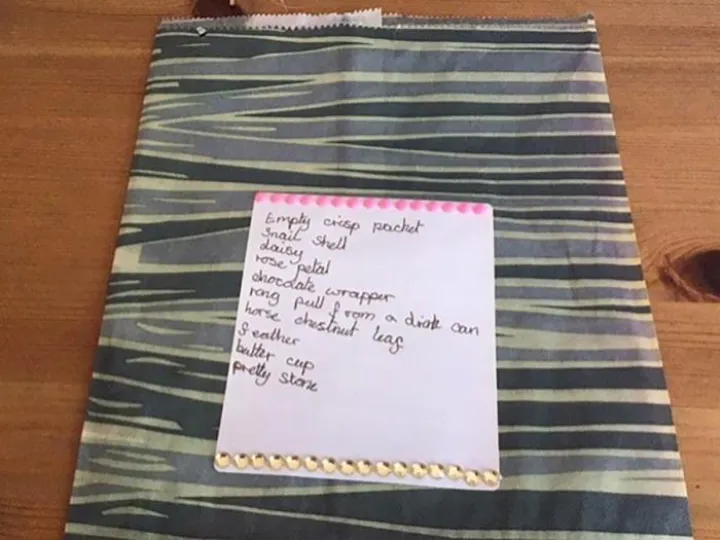 Empty crisp packet
Snail shell
daisy
rose petal
chocolate wrapper
ring pull from a drink can
horse chestnut leaf
feather
butter cup
pretty stone